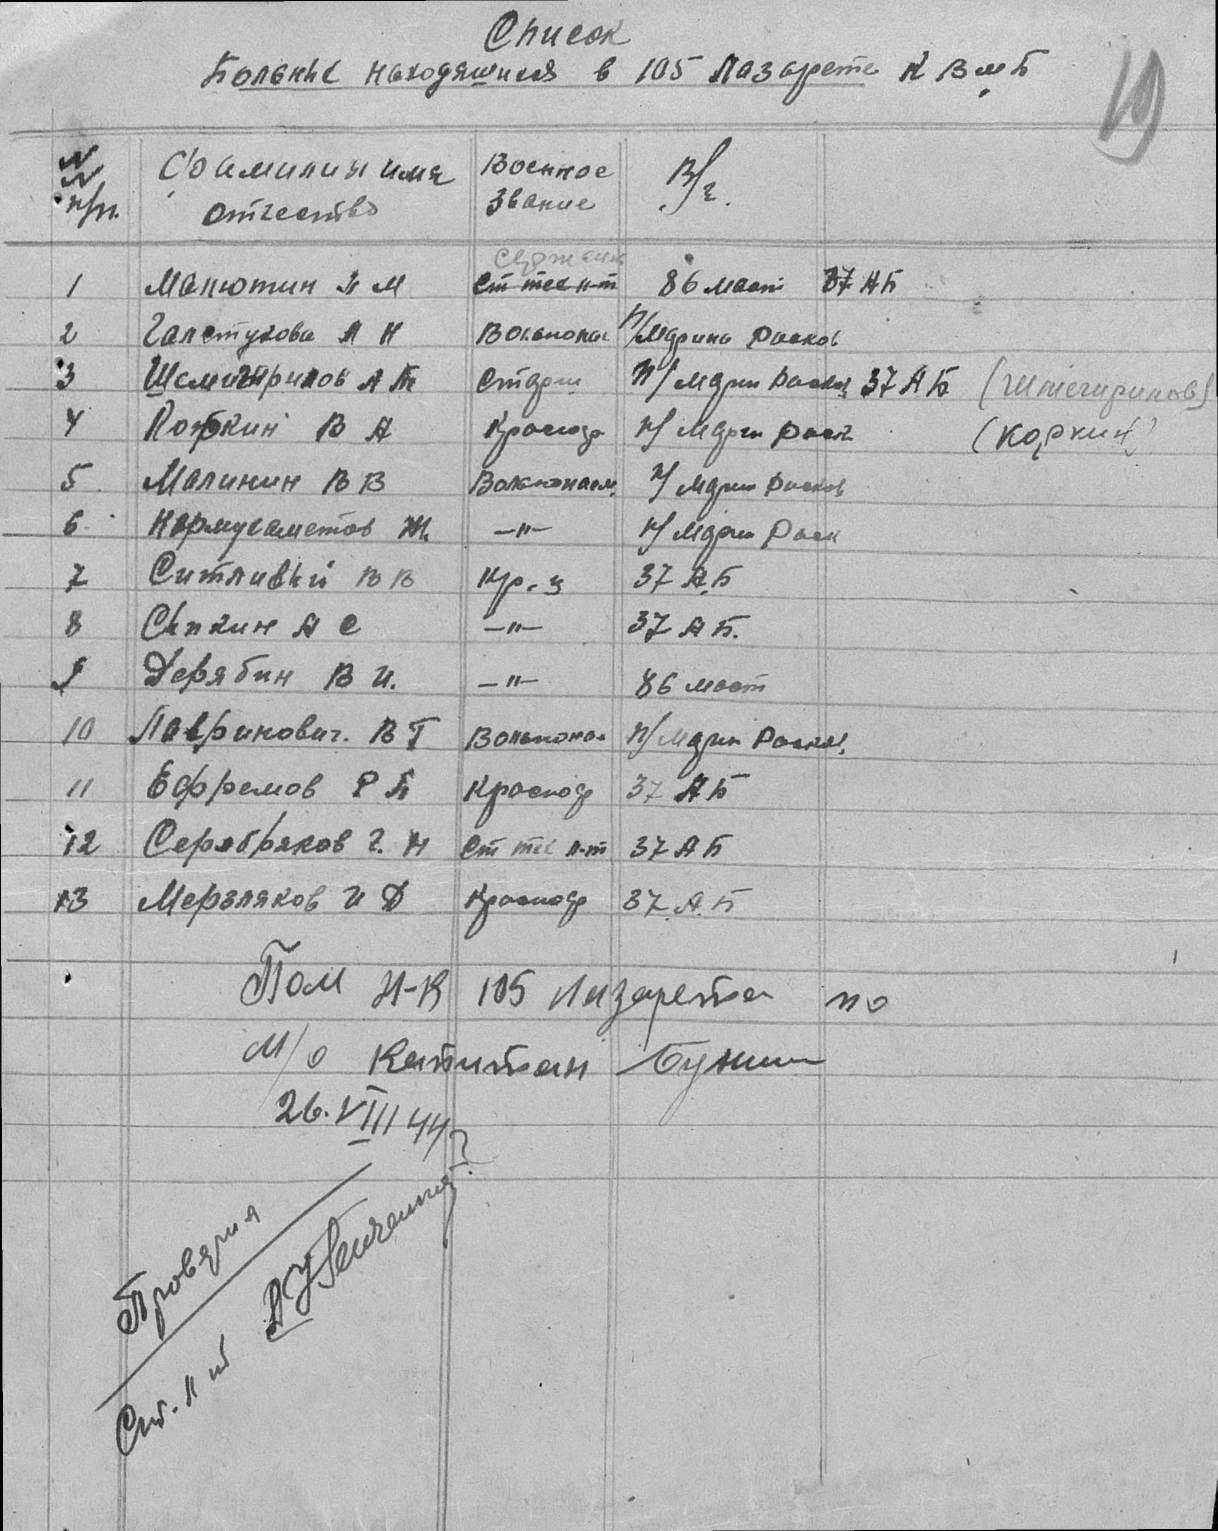 Список
Больных находящихся в 105 Лазарете К В М Б
19
№№ п/п. Фамилия имя отчество Военное звание В/ч.
сержант
1 Манютин П М Ст тех л-т 86 мост 37 АБ
2 Галстухова А Н Вольнонас П/Марина Расков
3 А Старш П/Марин Расков 37 АБ
4 Коркин В А Красноар П/Марин Раск (Коркин)
5 Малинин В В Вольнонаем. П/Марин Расков
6 Нормухаметов Ж. —"— П/Марин Раск
7 Ситливый В В Кр-ц 37 А.Б
8 Сыпкин А С —"— 37 А Б.
9 Дерябин В И. —"— 86 мост
10 Лавринович. В Г Вольнонае П/Марин Расков.
11 Ефремов Р П Красноар 37 АБ
12 Серебряков Г. Н Ст тех л-т 37 АБ
13 Мерзляков И Д Красноар 37 А.Б
Пом Н-К 105 Лазарета по
М/О Капитан
26.VIII 44
Проверил
Ст. л-т